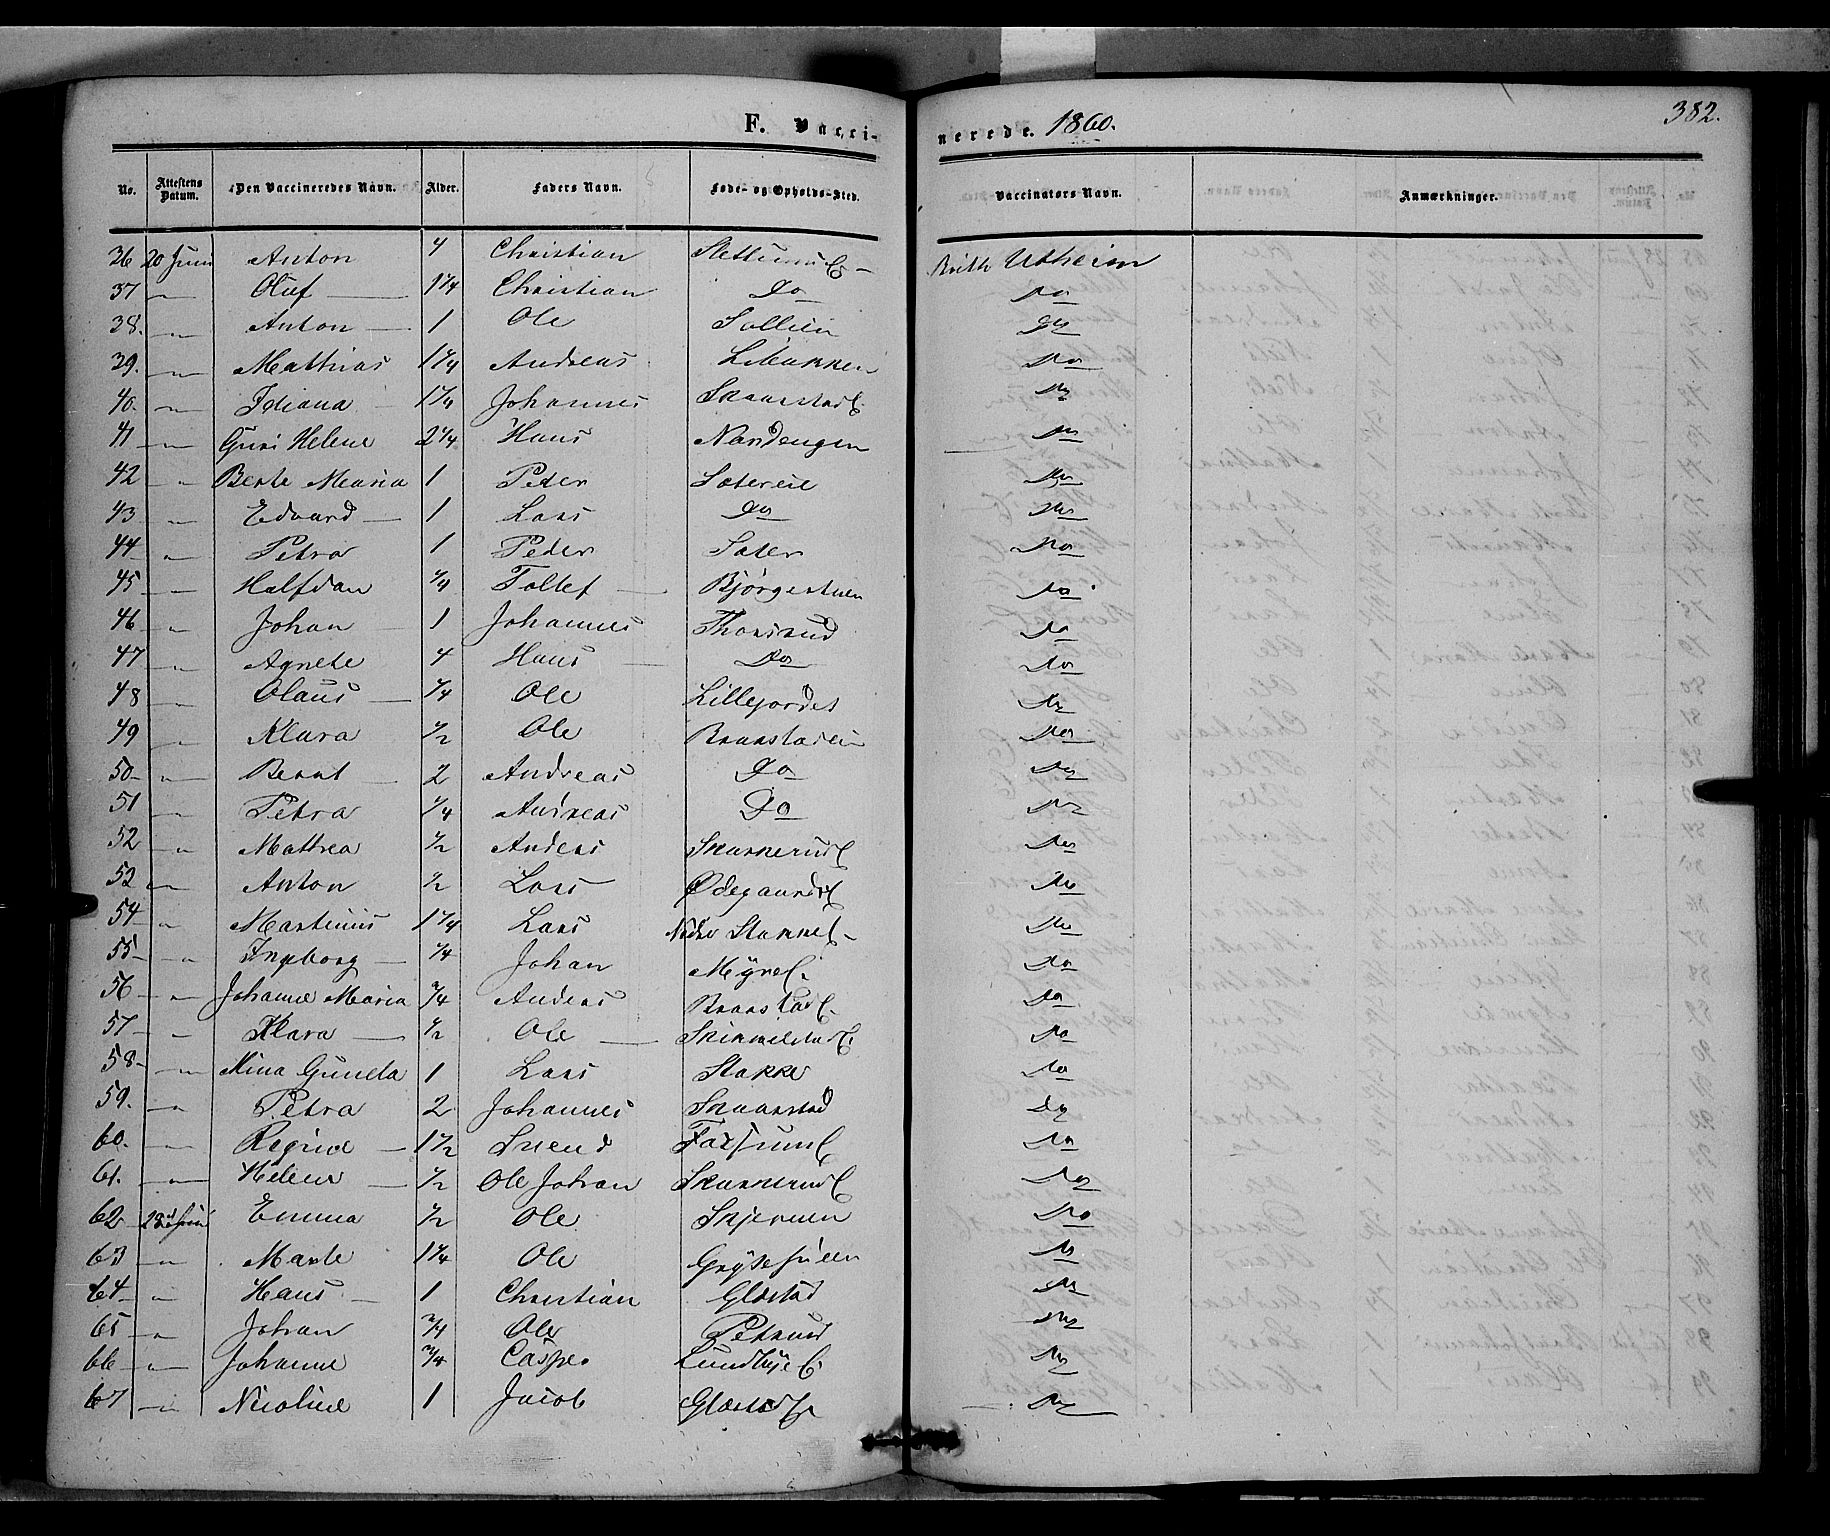 F. Vaccinerede. 1860. 382.
No. Attestens Datum. Den Vaccineredes Navn. Alder. Faders Navn. Føde- og Opholds-Sted. Vaccinators Navn. Anmærkninger.
36 20 Juni Anton 4 Christian Utheim
37 " Oluf 1 1/4 Christian Do Do
38. " Anton 1 Ole Sollien Do
39. " Mathias 1 1/4 Andreas Libakken Do
40. " Idiana 1 1/4 Johannes Skaarstad Do
41 " Guri Helene 2 1/4 Hans Nordengen Do
42 " Berte Maria 1 Peder Sætereie Do
43 " Edvard 1 Lars Do Do
44 " Petra 1 Peder Sæter Do
45 " Halfdan 1/4 Tollef Bjørgestuen Do
46 " Johan 1 Johannes Thorsrud Do
47 " Agnete 4 Hans Do Do
48 " Olaus 1/4 Ole Lillejordet Do
49 " Klara 1/2 Ole Do
50 " Bernt 2 Andreas Do Do
51 " Petra 1/4 Andreas Do Do
52 " Mathea 1/2 Anders Do
53 " Anton 1/2 Lars Ødegaards Do
54 " Martinus 1 1/4 Lars Nedre Do
55 " Ingeborg 1/4 Johan Do
56 " Johanne Maria 3/4 Anders Do
57 " Klara 1/2 Ole Do
58 " Mina Gunda 1 Lars Stakke Do
59. " Petra 2 Johannes Skaarstad Do
60. " Regine 1 1/2 Svend Do
61. " Helene 1/2 Ole Johan Do
62 Juni Emma 1/2 Ole Do
63 " Marte 1 1/4 Ole Do
64 " Hans 1 Christian Glæstad Do
65 " Johan 3/4 Ole Do
66 " Johanne 3/4 Casper Do
67 " Nicoline 1 Jacob Do